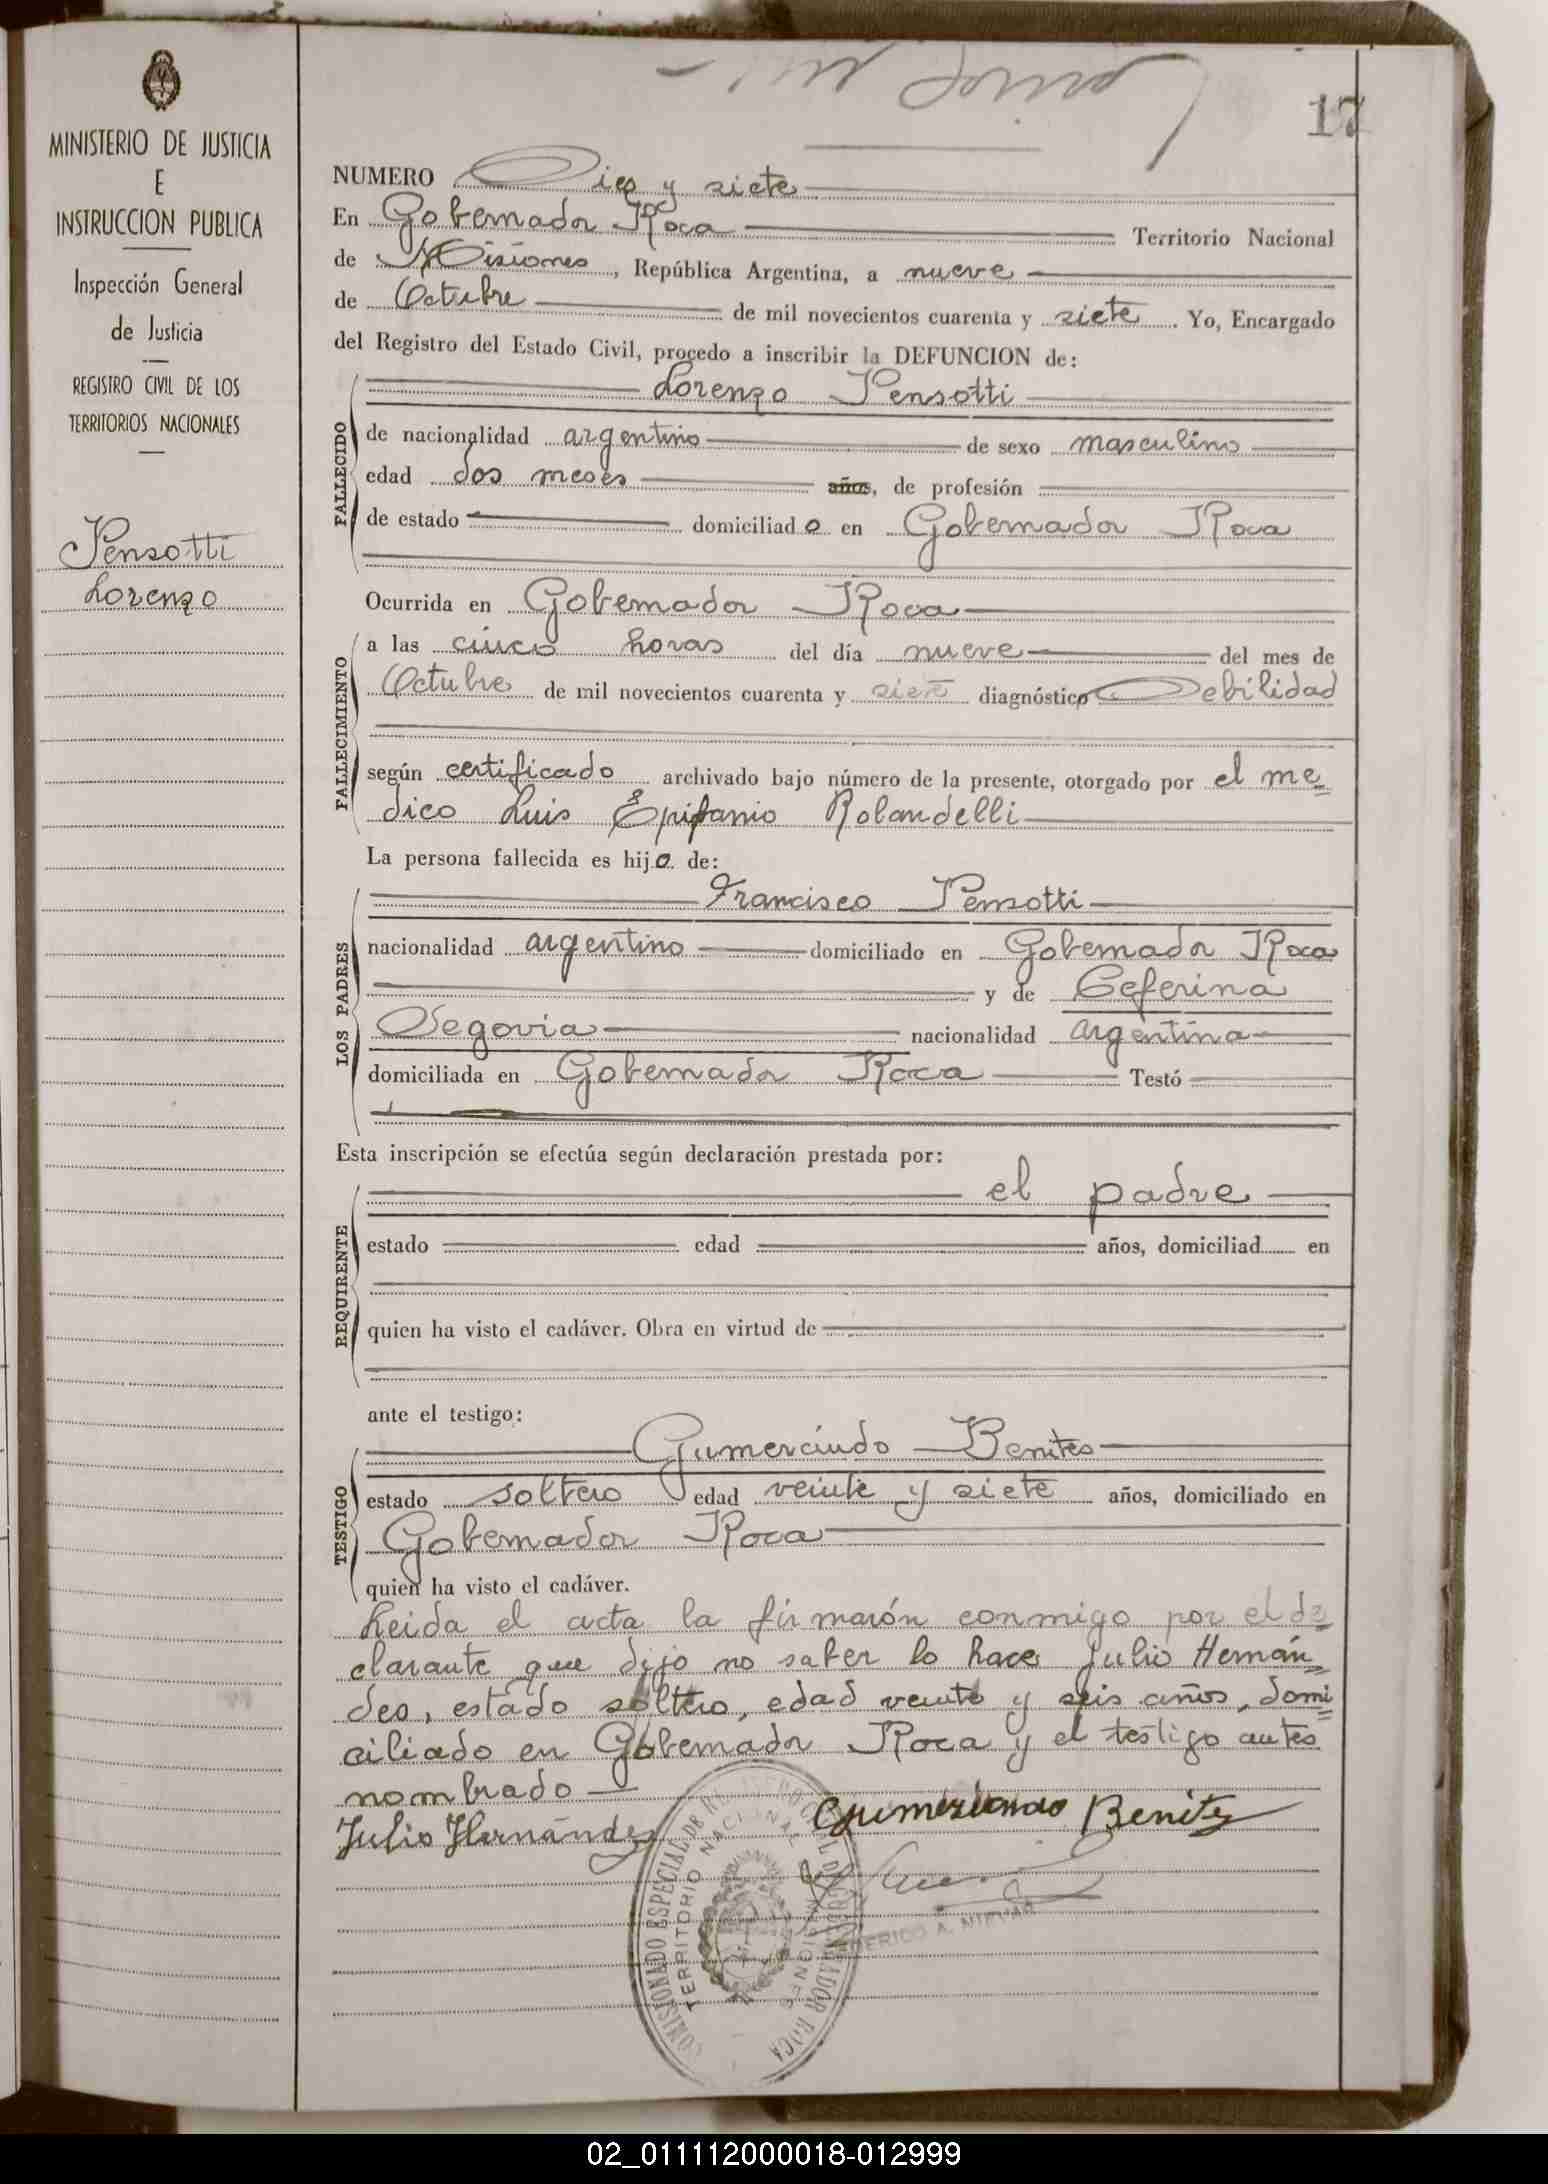 17
MINISTERIO DE JUSTICIA
E
INSTRUCCION PUBLICA
Inspección General
de Justicia
REGISTRO CIVIL DE LOS
TERRITORIOS NACIONALES
Pensotti
Lorenzo
NUMERO Diez y siete
En Gobernador Roca Territorio Nacional
de Misiones, República Argentina, a nueve
de Octubre de mil novecientos cuarenta y siete. Yo, Encargado
del Registro del Estado Civil, procedo a inscribir la DEFUNCION de:
FALLECIDO
Lorenzo Pensotti
de nacionalidad argentino de sexo masculino
edad dos meses años, de profesión
de estado domiciliado en Gobernador Roca
Ocurrida en Gobernador Roca
FALLECIMIENTO
a las cinco horas del día nueve del mes de
Octubre de mil novecientos cuarenta y siete diagnóstico Debilidad
según certificado archivado bajo número de la presente, otorgado por el me=
dico Luis Epifanio Rolandelli
La persona fallecida es hijo de:
LOS PADRES
Francisco Pensotti
nacionalidad argentino domiciliado en Gobernador Roca
y de Ceferina
Segovia nacionalidad argentina
domiciliada en Gobernador Roca Testó
Esta inscripción se efectúa según declaración prestada por:
REQUIRENTE
el padre
estado edad años, domiciliad en
quien ha visto el cadáver. Obra en virtud de
ante el testigo:
TESTIGO
Gumercindo Benites
estado soltero edad veinte y siete años, domiciliado en
Gobernador Roca
quien ha visto el cadáver.
Leida el acta la firmarón conmigo por el de=
clarante que dijo no saber lo hace Julio Hernán=
des, estado soltero, edad veinte y seis años, domi=
ciliado en Gobernador Roca y el testigo antes
nombrado
Julio Hernández Gumerciondo Benitez
COMISIONADO ESPECIAL DE REGISTRO CIVIL DE GOBERNADOR ROCA
TERRITORIO NACIONAL MISIONES
02_011112000018-012999